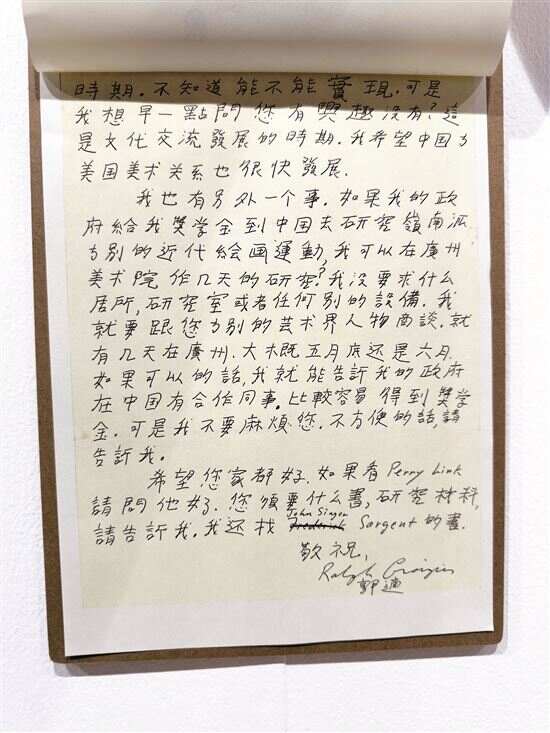 時期. 不知道能不能實現. 可是
我想早一點問您有興趣沒有? 這
是文化交流發展的時期. 我希望中国与
美国美术关系也很快發展.
我也有另外一个事. 如果我的政
府給我奬学金到中国去研究嶺南派
与別的近代绘画運動, 我可以在廣州
美术院作几天的研究? 我没要求什么
居所, 研究室或者任何別的設備. 我
就要跟您与別的芸术界人物商談. 就
有几天在廣州. 大概五月底还是六月.
如果可以的話, 我就能告訴我的政府
在中国有合作同事. 比較容易得到奬学
金. 可是我不要麻煩您. 不方便的話, 請
告訴我.
希望您家都好. 如果看 Perry Link
請問他好. 您須要什么書, 研究材料,
請告訴我. 我还找 John Singer Sargent 的畫.
敬祝,
Ralph Croizier
郭適